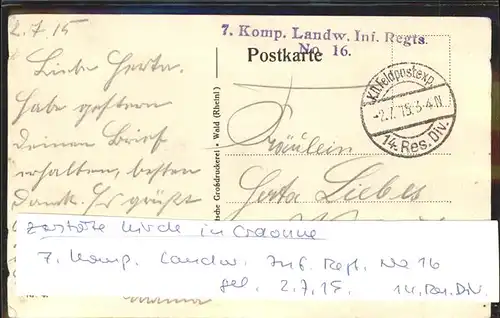 2.7.15
7. Komp. Landw. Inf. Regts.
No. 16.
Postkarte
Liebe Herta.
Habe gestern
Deinen Brief
erhalten, besten
Dank. Es grüßt
K.D.Feldpostexp.
-2.7.15.3-4.N.
14.Res.Div.
Fräulein
Herta Liebes
tsche Großdruckerei • Wald (Rheinl)
zerstörte Kirche in Craonne
7. Komp. Landw. Inf. Regt. No 16
gel. 2.7.15. 14. Res. Div.